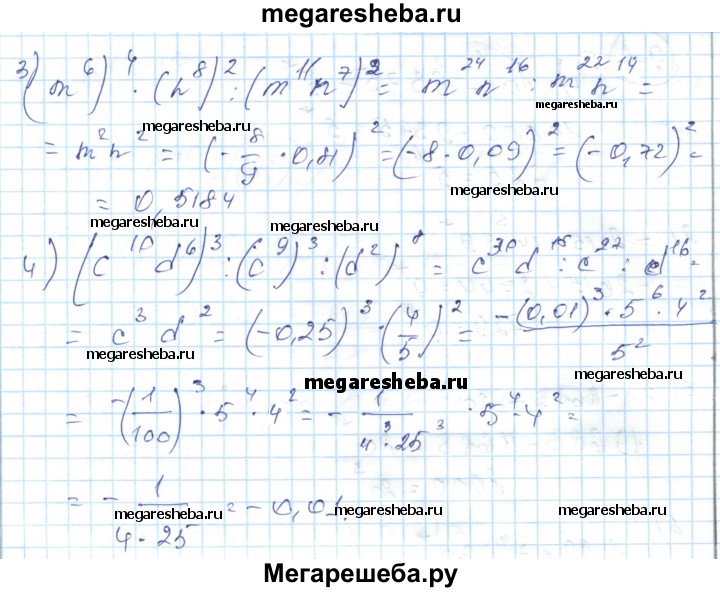 megaresheba.ru
3) (m⁶)⁴ · (n⁸)² : (m¹¹n⁷)² = m²⁴n¹⁶ : m²²n¹⁴ =
megaresheba.ru
megaresheba.ru
= m²n² = (-8/9 · 0,81)² = (-8 · 0,09)² = (-0,72)² =
megaresheba.ru
= 0,5184
megaresheba.ru
megaresheba.ru
4) (c¹⁰d⁶)³ : (c⁹)³ : (d²)⁸ = c³⁰d¹⁸ : c²⁷ : d¹⁶ =
= c³d² = (-0,25)³ · (4/5)² = -(0,01)³ · 5⁶ · 4² / 5²
megaresheba.ru
megaresheba.ru
megaresheba.ru
= -(1/100)³ · 5⁴ · 4² = - 1/4³·25³ · 5⁴ · 4² =
= - 1/4·25 = -0,01.
megaresheba.ru
megaresheba.ru
megaresheba.ru
Мегарешеба.ру